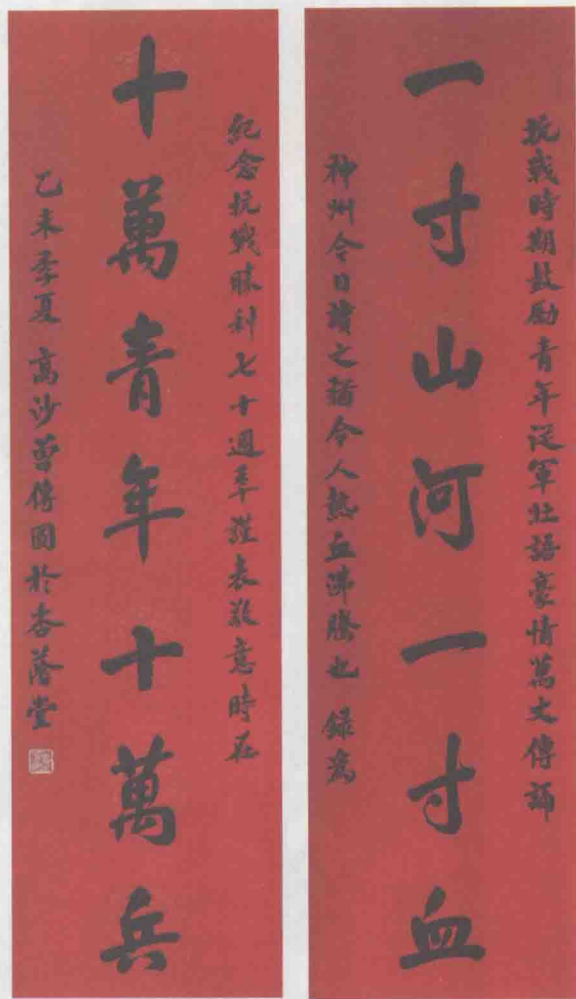 抗戰時期鼓勵青年從軍壯語豪情萬丈傳誦
一寸山河一寸血
神州今日讀之猶令人熱血沸騰也 錄為
紀念抗戰勝利七十週年謹表敬意時在
十萬青年十萬兵
乙未季夏 高沙曾傳國於杏堂